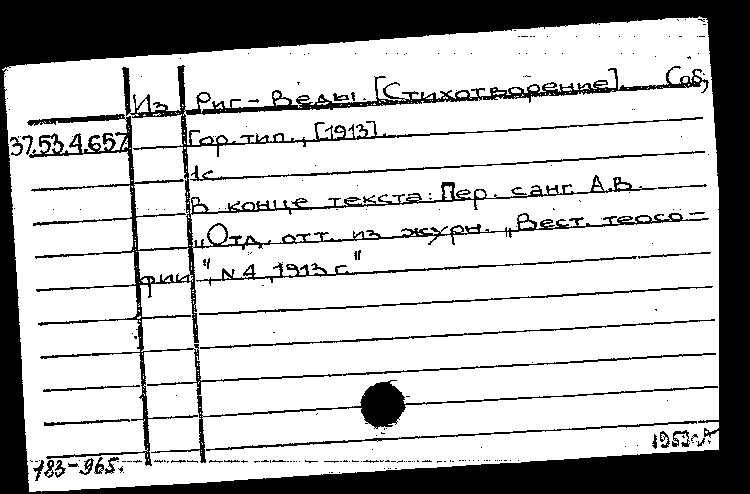 Из Риг-Веды. [Стихотворение]. Спб,
37.53.4.657 Гор. тип., [1913].
1с
В конце текста: Пер. санг. А.В.
„Отд. отт. из журн. „Вест. теосо-
фии", N 4, 1913 г."
783-965.